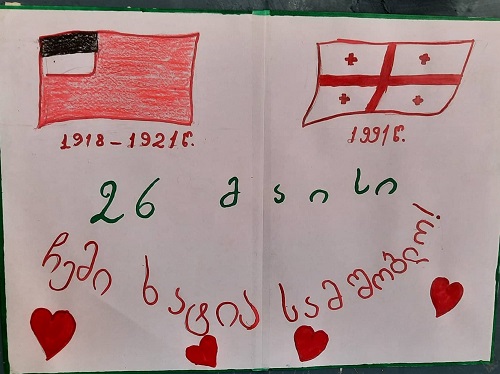 1918-1921წ.
1991წ.
26 მაისი
ჩემი ხატია სამშობლო!